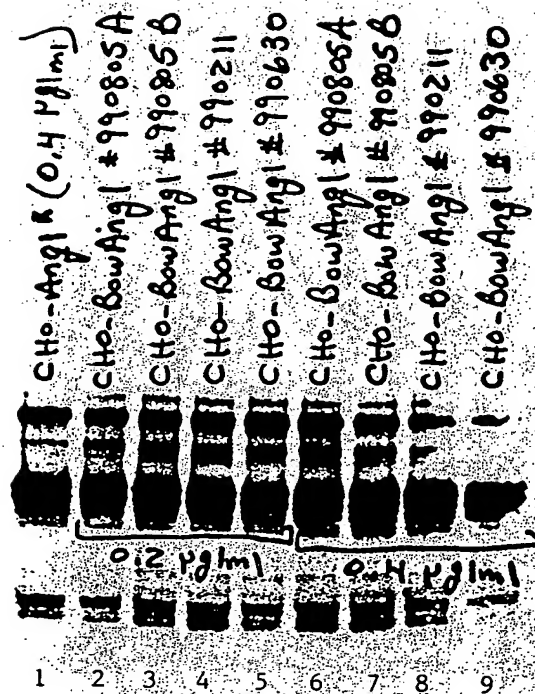 CHO-Ang1* (0.4 µg/ml)
CHO-BowAng1 #990805A
CHO-BowAng1 #990805B
CHO-BowAng1 #990211
CHO-BowAng1 #990630
CHO-BowAng1 #990805A
CHO-BowAng1 #990805B
CHO-BowAng1 #990211
CHO-BowAng1 #990630
0.2 µg/ml
0.4 µg/ml
1 2 3 4 5 6 7 8 9